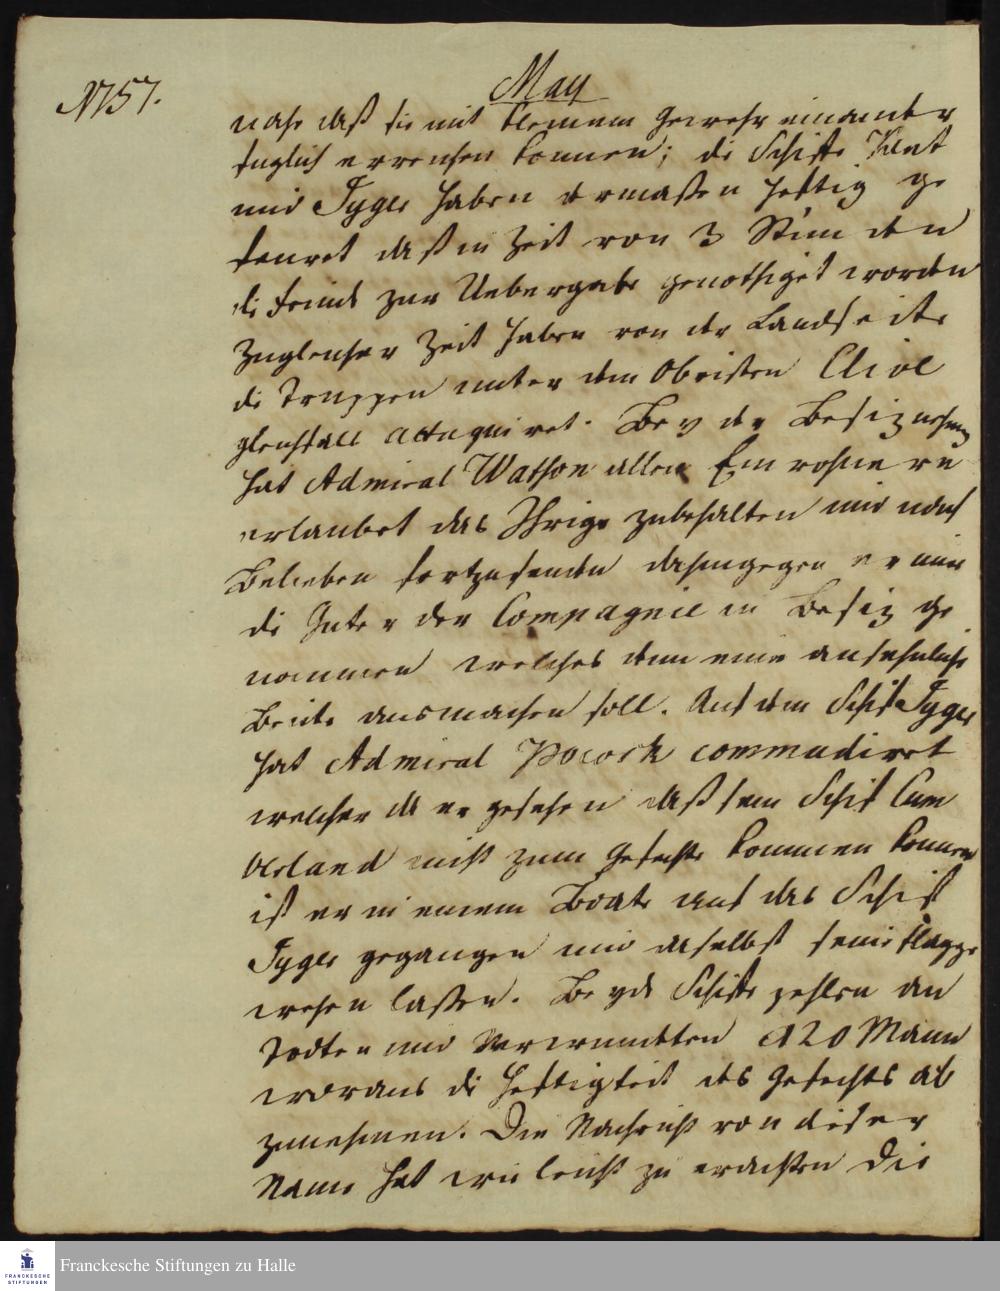 1757.
May
nahe daß sie mit kleinem Gewehr einander
füglich erreichen können; die Schiffe Kent
und Tyger haben dermaßen heftig ge
feuret daß in Zeit von 3 Stunden
die Feinde zur Uebergabe genöthiget worden
Zugleicher Zeit haben von der Landseite
die Truppen unter dem Obristen Clive
gleichfalls attaquiret. Bey der Besiznehmung
hat Admiral Watson allen Einwohnern
erlaubet das Ihrige zubehalten und nach
Belieben fortzusenden dahingegen er nun
die Güter der Compagnie in Besiz ge
nommen welches denn eine ansehnliche
Beute ausmachen soll. Auf dem Schif Tyger
hat Admiral Pocock commendiret
welcher da er gesehen daß sein Schif Cum
berland nicht zum Gefechte kommen können
ist er in einem Boote auf das Schif
Tyger gegangen und daselbst seine Flagge
wehen laßen. Beyde Schiffe zehlen an
Todten und Verwundten 120 Mann
woraus die Heftigkeit des Gefechts ab
zunehmen. Die Nachricht von dieser
hat wie leicht zu erachten die
Franckesche Stiftungen zu Halle
FRANCKESCHE
STIFTUNGEN